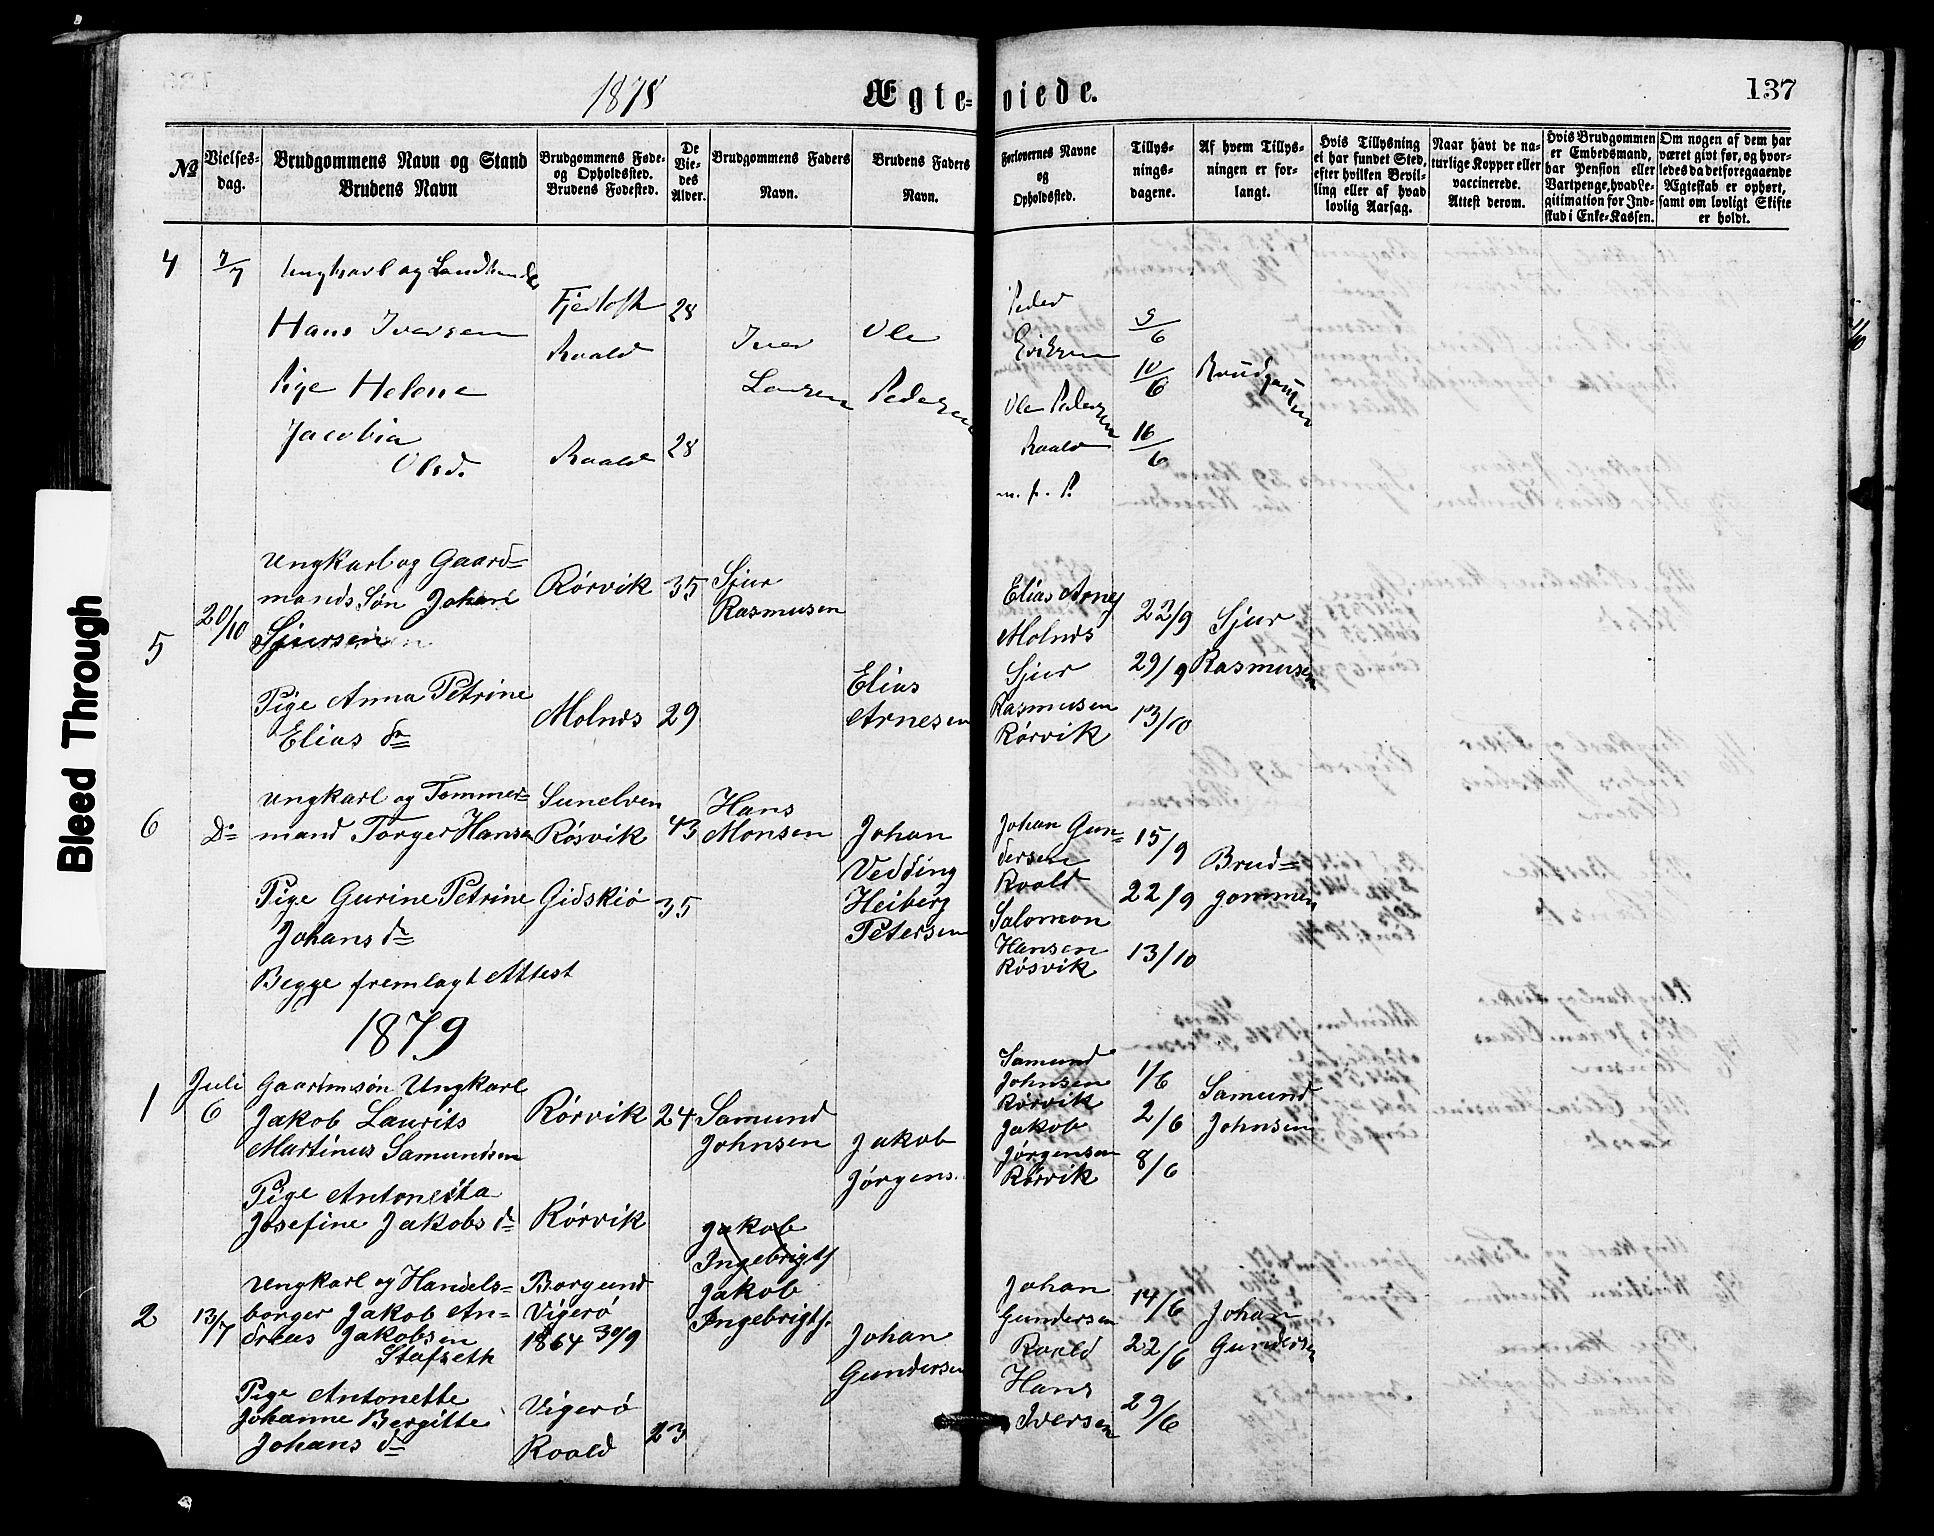 1878
Ægteviede.
137
No
Vielses-
dag.
Brudgommens Navn og Stand
Brudens Navn
Brudgommens Føde-
og Opholdssted.
Brudens Fødested.
De
Vie-
des
Alder.
Brudgommens Faders
Navn.
Brudens Faders
Navn.
Forlovernes Navne
og
Opholdssted.
Tillys-
nings-
dagene.
Af hvem Tillys-
ningen er for-
langt.
Hvis Tillysning
ei har fundet Sted,
efter hvilken Bevil-
ling eller af hvad
lovlig Aarsag.
Naar havt de na-
turlige Kopper eller
vaccinerede.
Attest derom.
Hvis Brudgommen
er Embedsmand,
har Pension eller
Vartpenge, hvad Le-
gitimation for Ind-
skud i Enke-Kassen.
Om nogen af dem har
været givt før, og hvor-
ledes da det foregaaende
Ægteskab er ophørt,
samt om lovligt Skifte
er holdt.
4
7/7
Ungkarl og
Hans Iversen
Pige Helene
Jacobia
Olsd.
Fjertoft
Roald
Roald
28
28
Iver
Larsen
Ole
Pedersen
Peder
Eriksen
Ole Pedersen
Roald
m. f. P.
9/6
10/6
16/6
Brudgommen
5
20/10
Ungkarl og Gaard=
mands Søn Johan
Sjursen
Pige Anna Petrine
Elias dr
Rørvik
Molnes
35
29
Sjur
Rasmusen
Elias
Arnesen
Elias Arnes
Molnes
Sjur
Rasmusen
Rørvik
22/9
29/9
13/10
Sjur
Rasmusen
6
Do
Ungkarl og Tømmer=
mand Torger Hansen
Pige Gurine Petrine
Johans dr
Begge fremlagt Attest
Sunelven
Røsvik
Gidskiø
43
35
Hans
Monsen
Johan
Vedding
Heiberg
Petersen
Johan Gun=
dersen
Roald
Salomon
Hansen
Røsvik
15/9
22/9
13/10
Brud=
gommen
1879
1
Juli
6
Gaardmsøn Ungkarl
Jakob Laurits
Martinus Samundsen
Pige Antonetta
Josefine Jakobs dr
Rørvik
Rørvik
24
Samund
Johnsen
Jakob
Jørgens.
Samund
Johnsen
Rørvik
Jakob
Jørgensen
Rørvik
1/6
2/6
8/6
Samund
Johnsen
2
13/7
Ungkarl og Handels=
borger Jakob An=
dreas Jakobsen
Stafseth
Pige Antonette
Johanne Bergitte
Johans dr
Borgund
Vigerø
1864 30/9
Vigerø
Roald
23
Jakob
Ingebrigts.
Jakob
Ingebrigts.
Johan
Gundersen
Johan
Gundersen
Roald
Hans
Iversen
14/6
22/6
29/6
Johan
Gundersen
Bleed Through